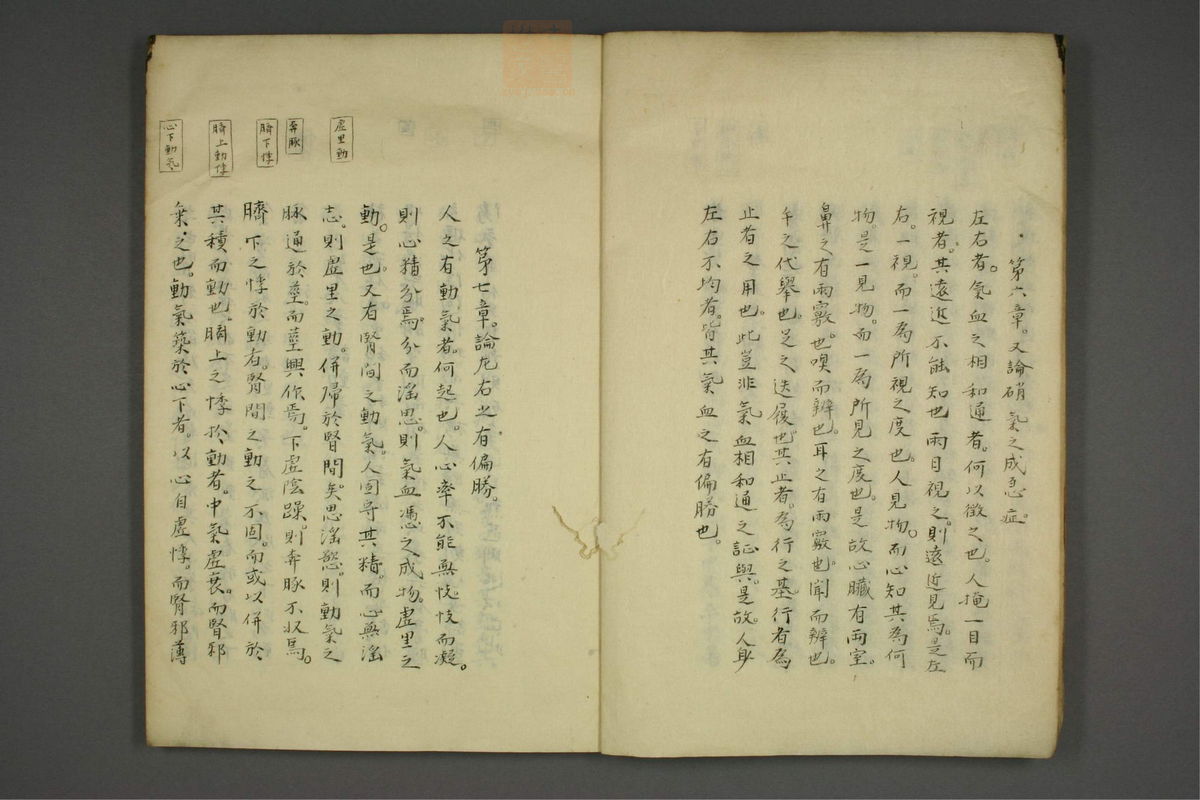 第六章。又論硝氣之成急症。
左右者。氣血之相和通者。何以徴之也。人掩一目而
視者。其遠近不能知也。兩目視之。則遠近見焉。是左
右。一視。而一為所視之度也。人見物。而心知其為何
物。是一見物。而一為所見之度也。是故心臟有兩室。
鼻之有兩竅也。嗅而辨也。耳之有兩竅也。聞而辨也。
手之代舉也。足之迭履也。其止者。為行之基。行者為
止者之用也。此豈非氣血相和通之証與。是故。人身
左右不均者。皆其氣血之有偏勝也。
第七章。論左右之有偏勝。
人之有動氣者。何起也。人心率不能無忮。忮而凝。
則心精分焉。分而淫思。則氣血馮之成物。虛里之
動。是也。又有腎間之動氣。人固守其精。而心無淫
志。則虛里之動。併歸於腎間矣。思淫慾。則動氣之
脉通於莖。而莖興作焉。下虛陰躁。則奔豚不収焉。
臍下之悸於動者。腎間之動之不固。而或以併於
其積而動也。臍上之悸於動者。中氣虛衰。而腎邪
乘之也。動氣築於心下者。以心自虛悸。而腎邪薄
虛里動
奔豚
臍下悸
臍上動悸
心下動氣